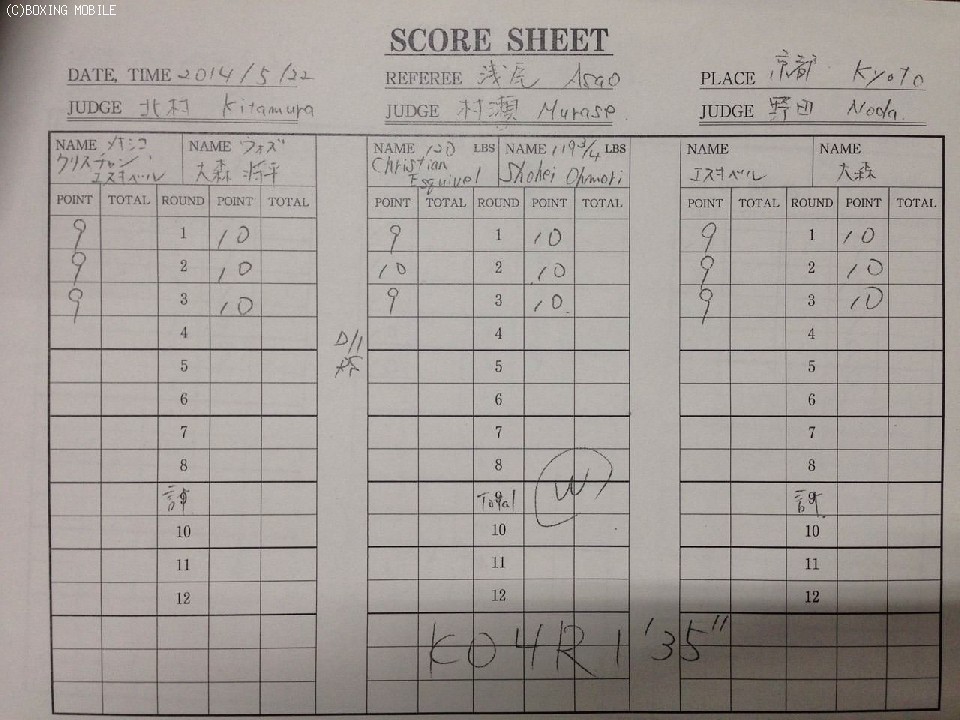 (C)BOXING MOBILE
SCORE SHEET
DATE, TIME 2014/5/22 REFEREE 浅尾 Asao PLACE 京都 Kyoto
JUDGE 北村 Kitamura JUDGE 村瀬 Murase JUDGE 野田 Noda
NAME メキシコ NAME ウォズ NAME 120 LBS NAME 119 3/4 LBS NAME NAME
クリスチャン エスキベル 大森 将平 Christian Esquivel Shohei Ohmori エスキベル 大森
POINT TOTAL ROUND POINT TOTAL POINT TOTAL ROUND POINT TOTAL POINT TOTAL ROUND POINT TOTAL
9 1 10 9 1 10 9 1 10
9 2 10 10 2 10 9 2 10
9 3 10 9 3 10 9 3 10
4 4 4
5 5 5
6 6 6
7 7 7
8 8 8
計 Total W 計
10 10 10
11 11 11
12 12 12
KO 4R 1'35"